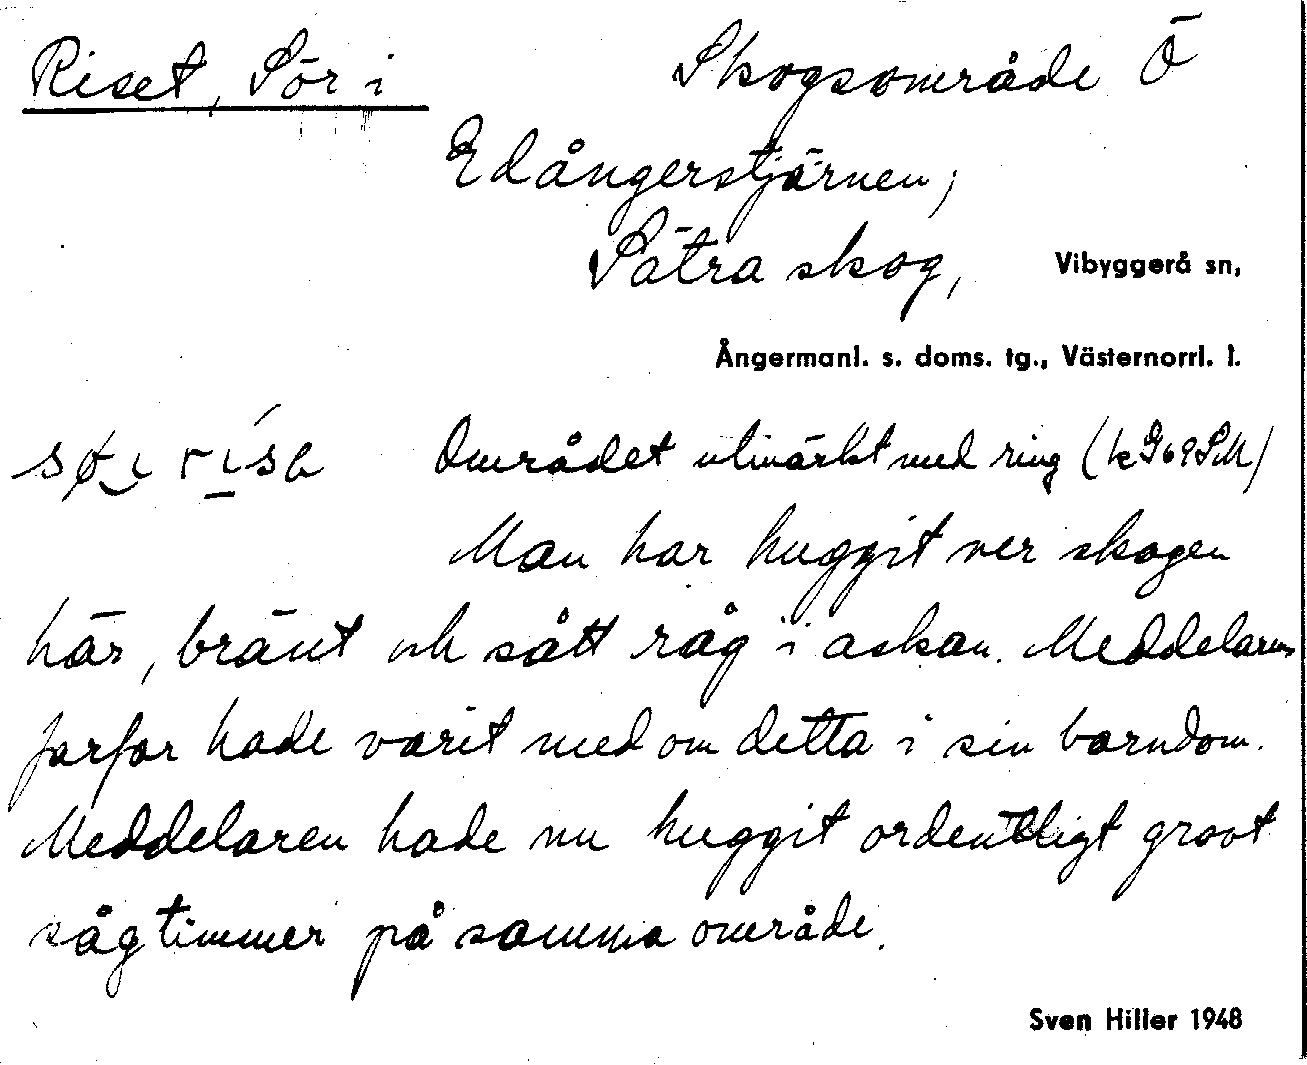 Riset, Sör i Skogsområde Ö
Edångerstjärnen,
Sätra skog, Vibyggerå sn,
Ångermanl. s. doms. tg., Västernorrl. l.
Området utmärkt med ring
Man har huggit ner skogen
här, bränt och sått råg i askan. Meddelarens
farfar hade varit med om detta i sin barndom.
Meddelaren hade nu huggit ordentligt grovt
sågtimmer på samma område.
Sven Hiller 1948